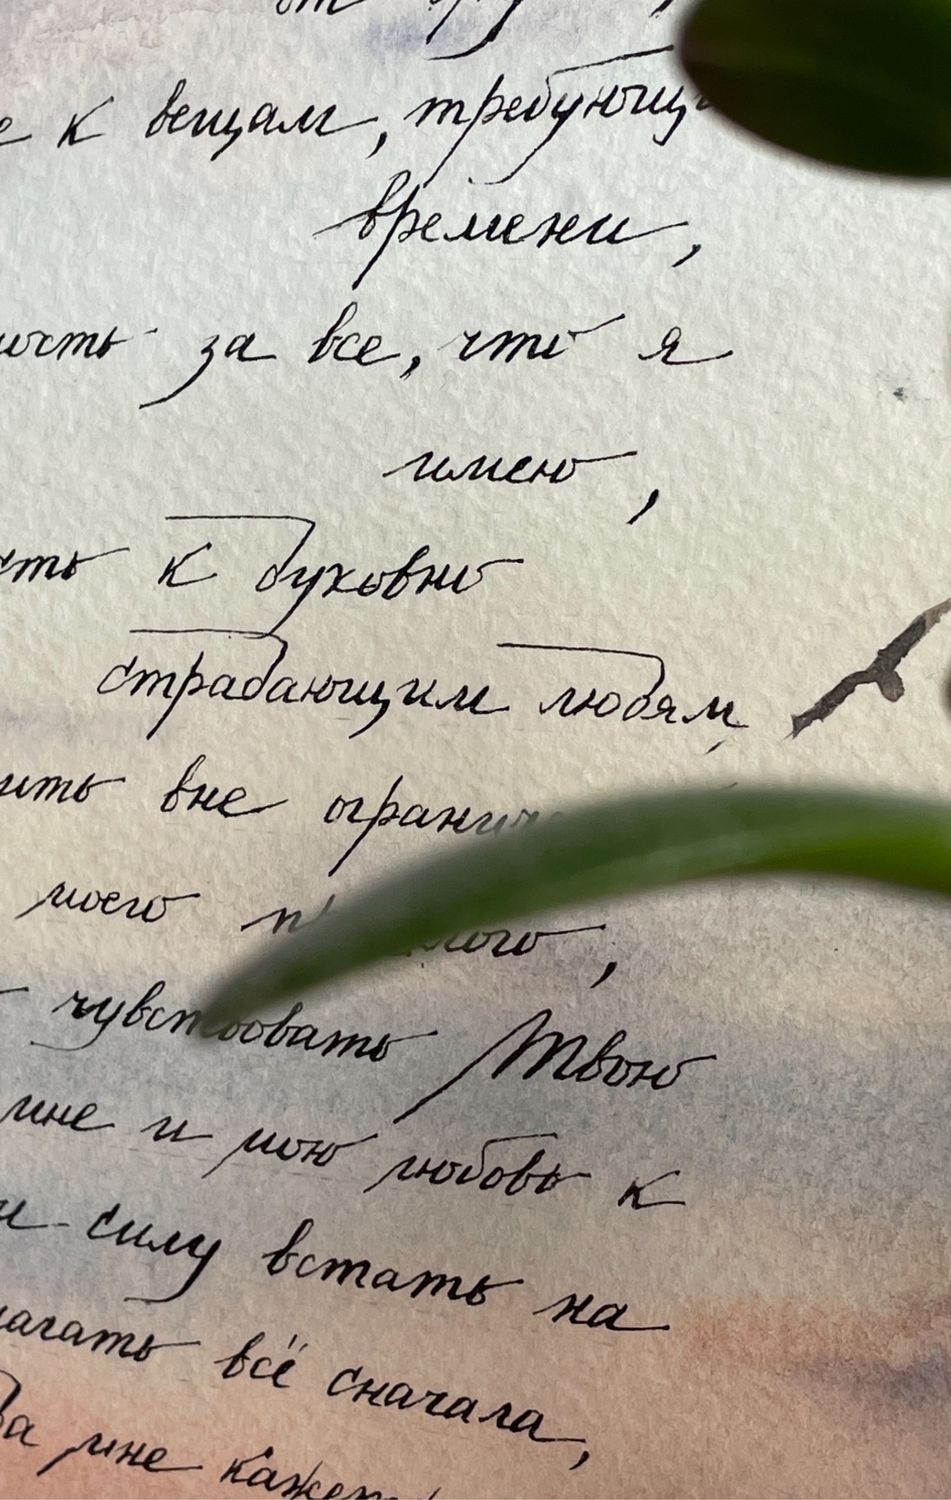 к вещам, требующи
времени,
ность за все, что я
имею,
сть к духовно
страдающим людям,
ить вне огранич
моего
чувствовать Твою
мне и мою любовь к
и силу встать на
начать всё сначала,
мне кажет